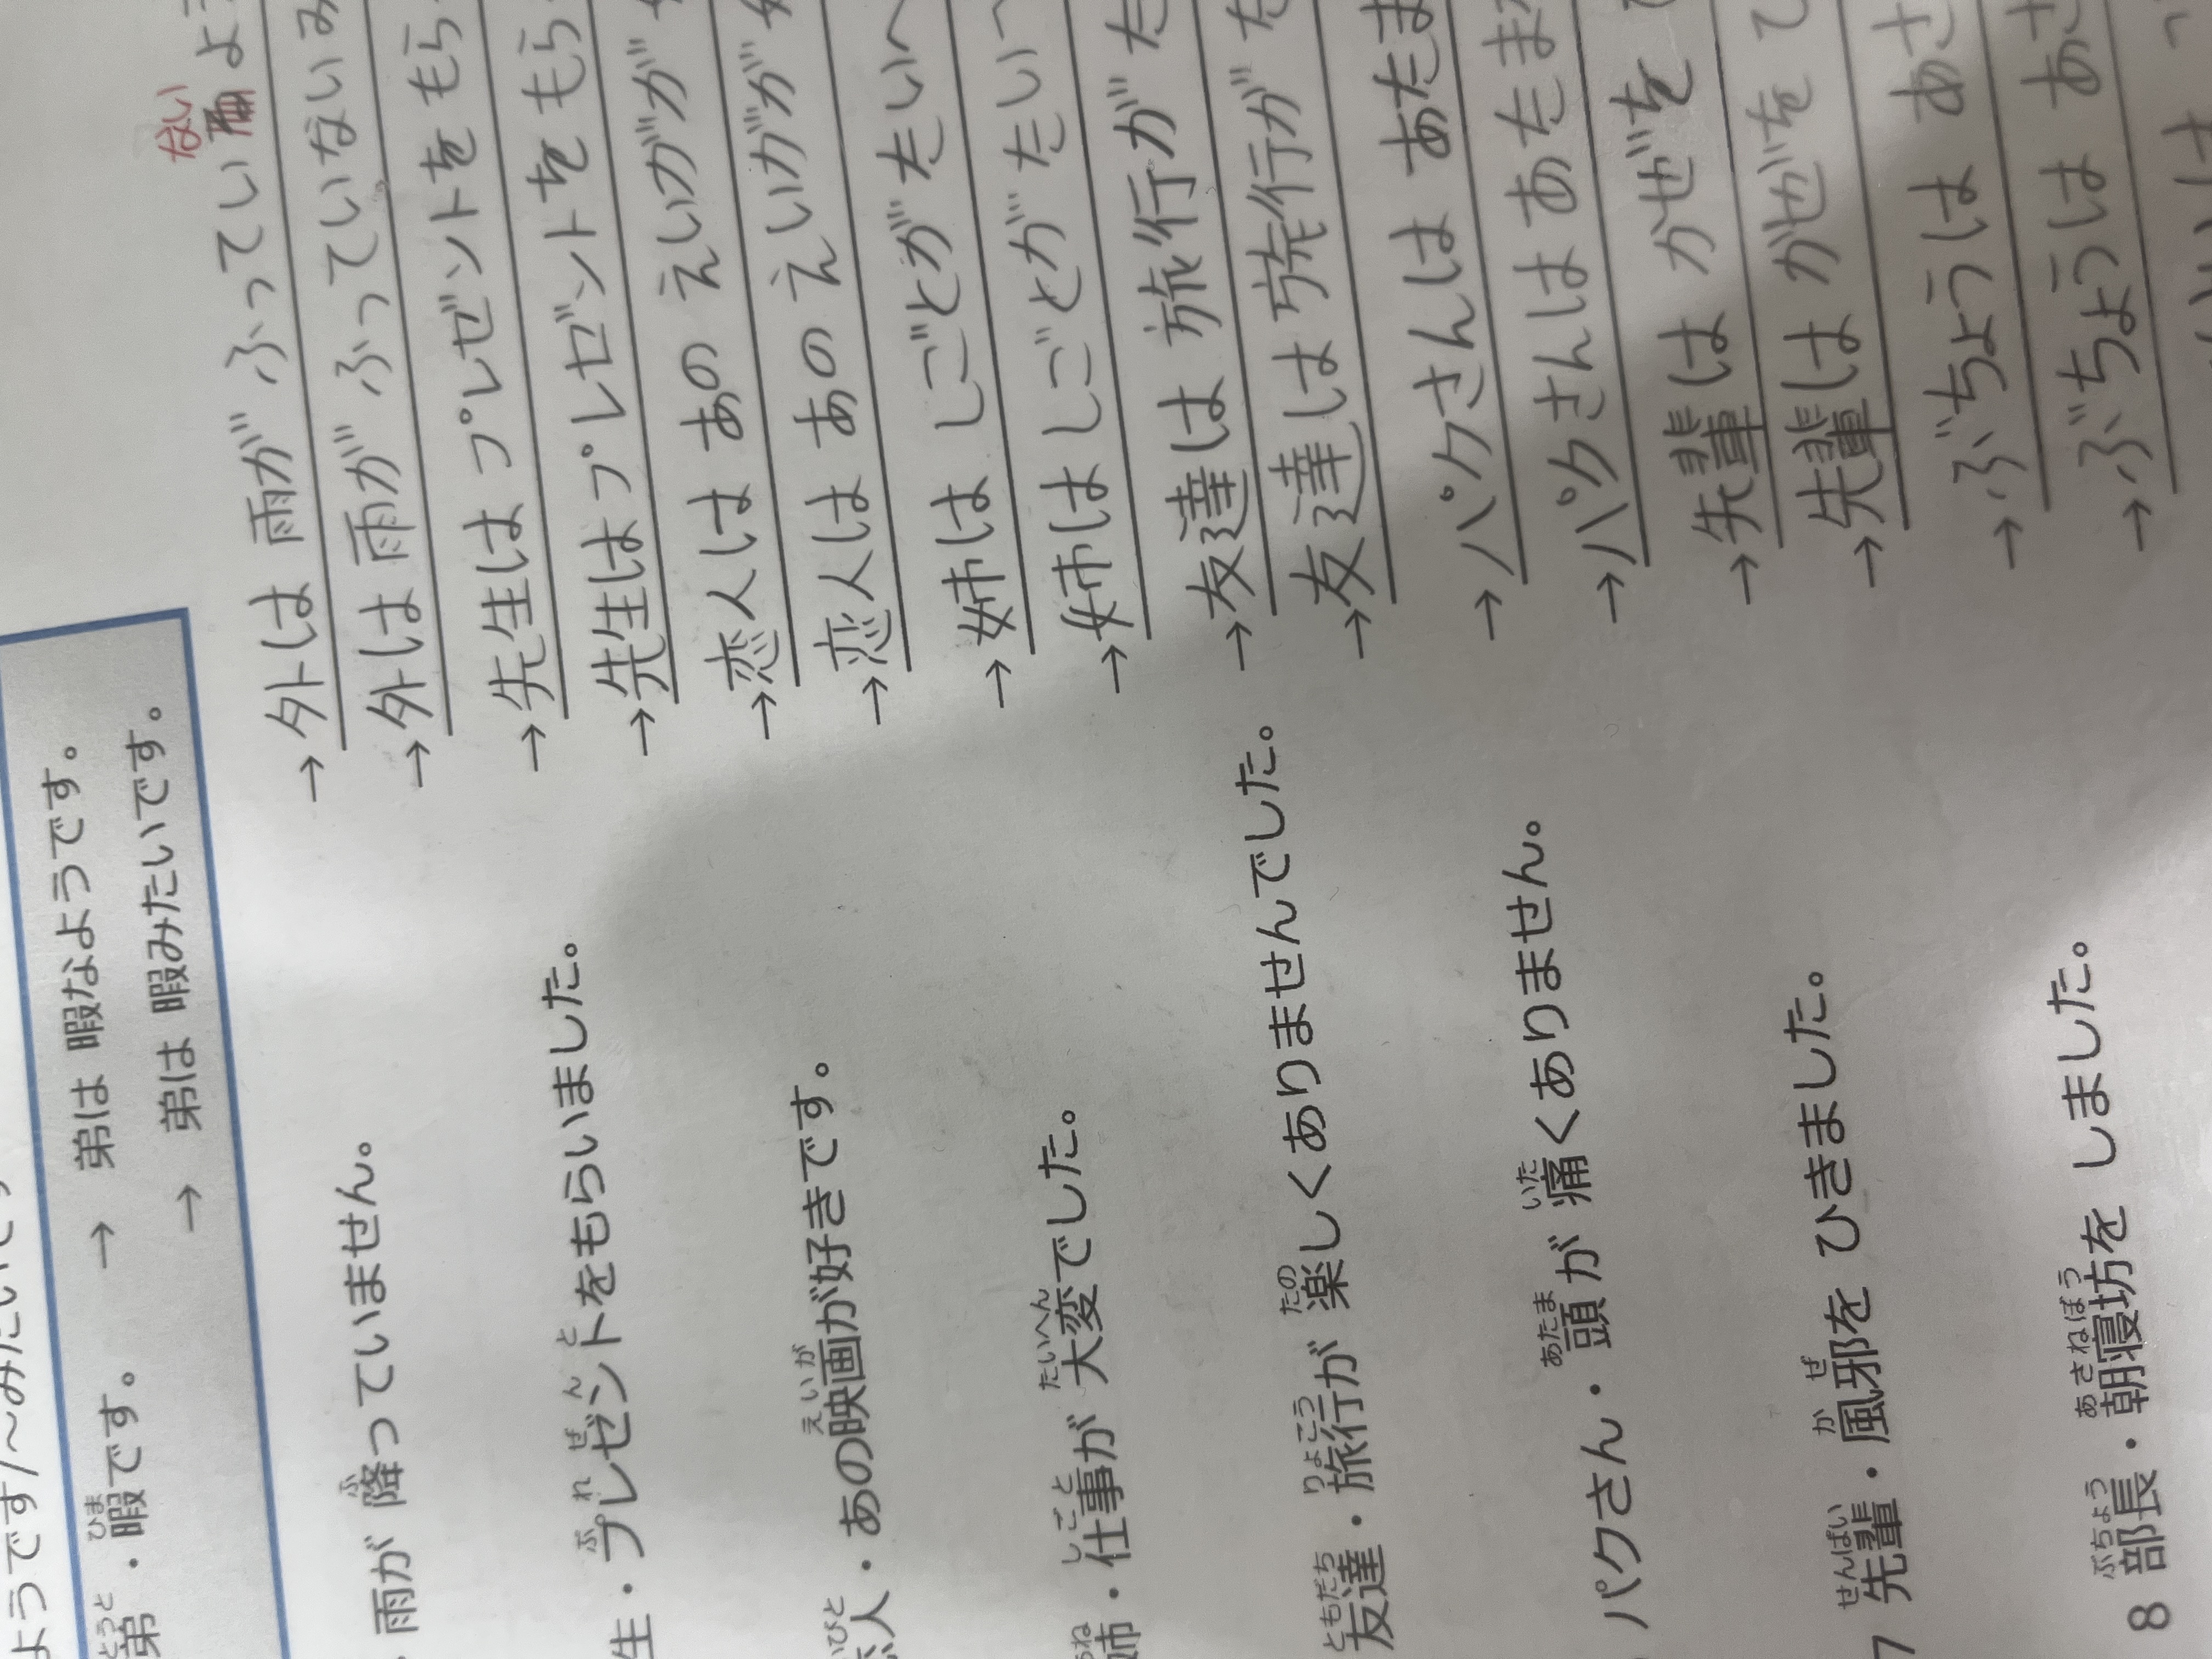 ようです/〜みたいです
弟・暇です。 → 弟は 暇なようです。
→ 弟は 暇みたいです。
・雨が 降っていません。
→外は 雨が ふってい
ない
→外は 雨が ふっていない
生・プレゼントをもらいました。
→先生は プレゼントを もら
→先生は プレゼントを もら
恋人・あの映画が好きです。
→恋人は あの えいがが
→恋人は あの えいがが
姉・仕事が 大変でした。
→姉は しごとが たい
→姉は しごとが たい
友達・旅行が 楽しくありませんでした。
→友達は 旅行が た
→友達は 旅行が た
パクさん・頭が 痛くありません。
→パクさんは あたま
→パクさんは あたま
7 先輩・風邪を ひきました。
→先輩は かぜを
→先輩は かぜを
8 部長・朝寝坊を しました。
→ぶちょうは あさ
→ぶちょうは あさ